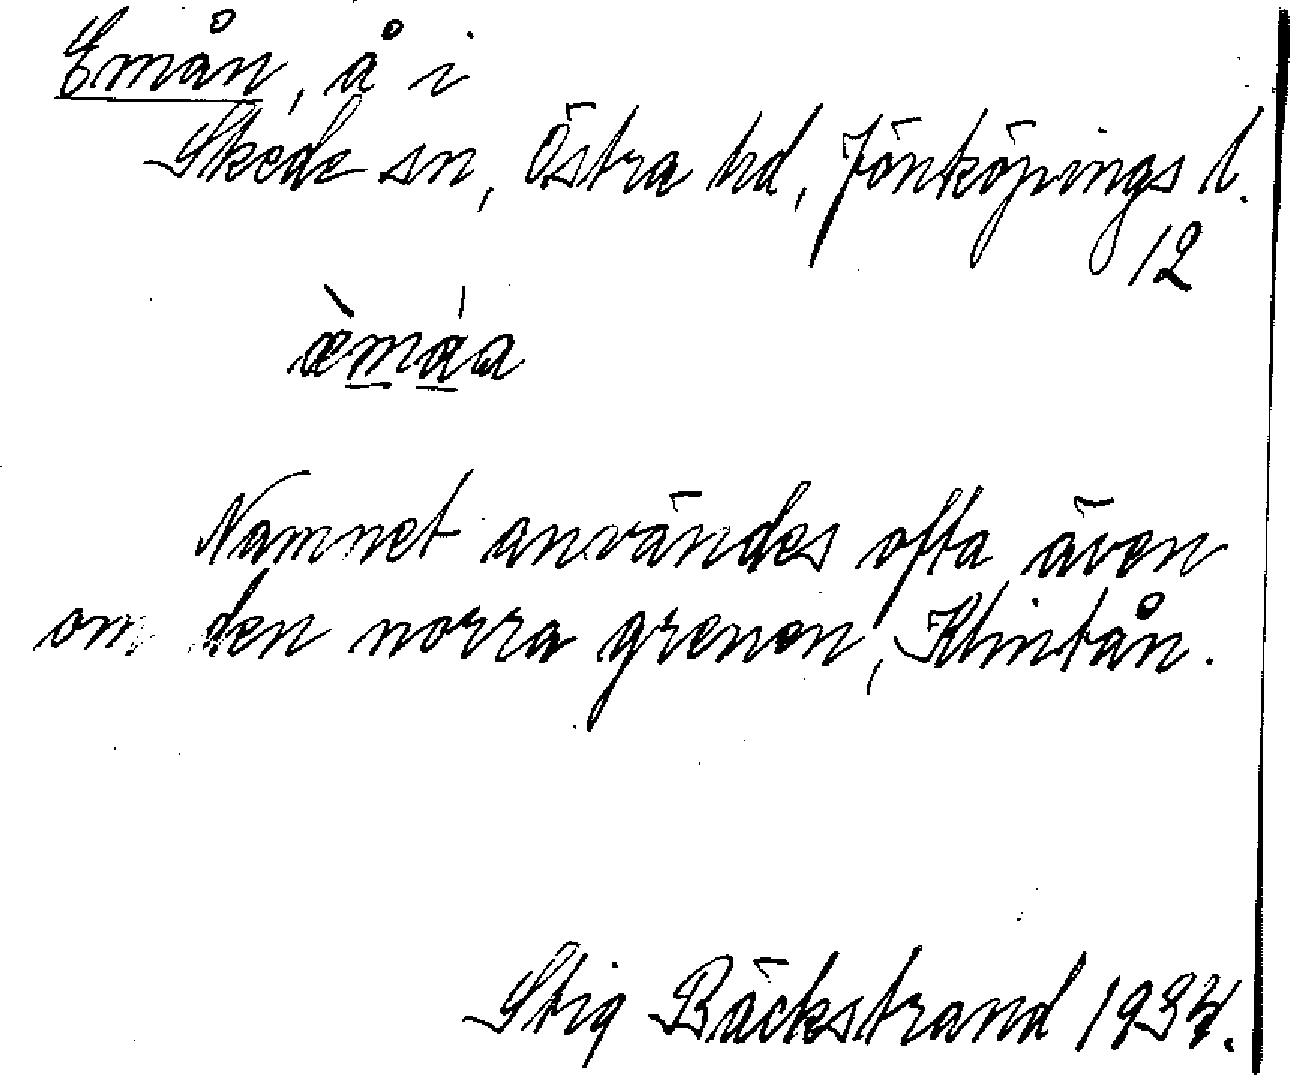 Emån, å i
Skede sn, Östra hd, Jönköpings l.
12
æ̀máa
Namnet användes ofta även
om den norra grenen, Klintån.
Stig Bäckstrand 1934.